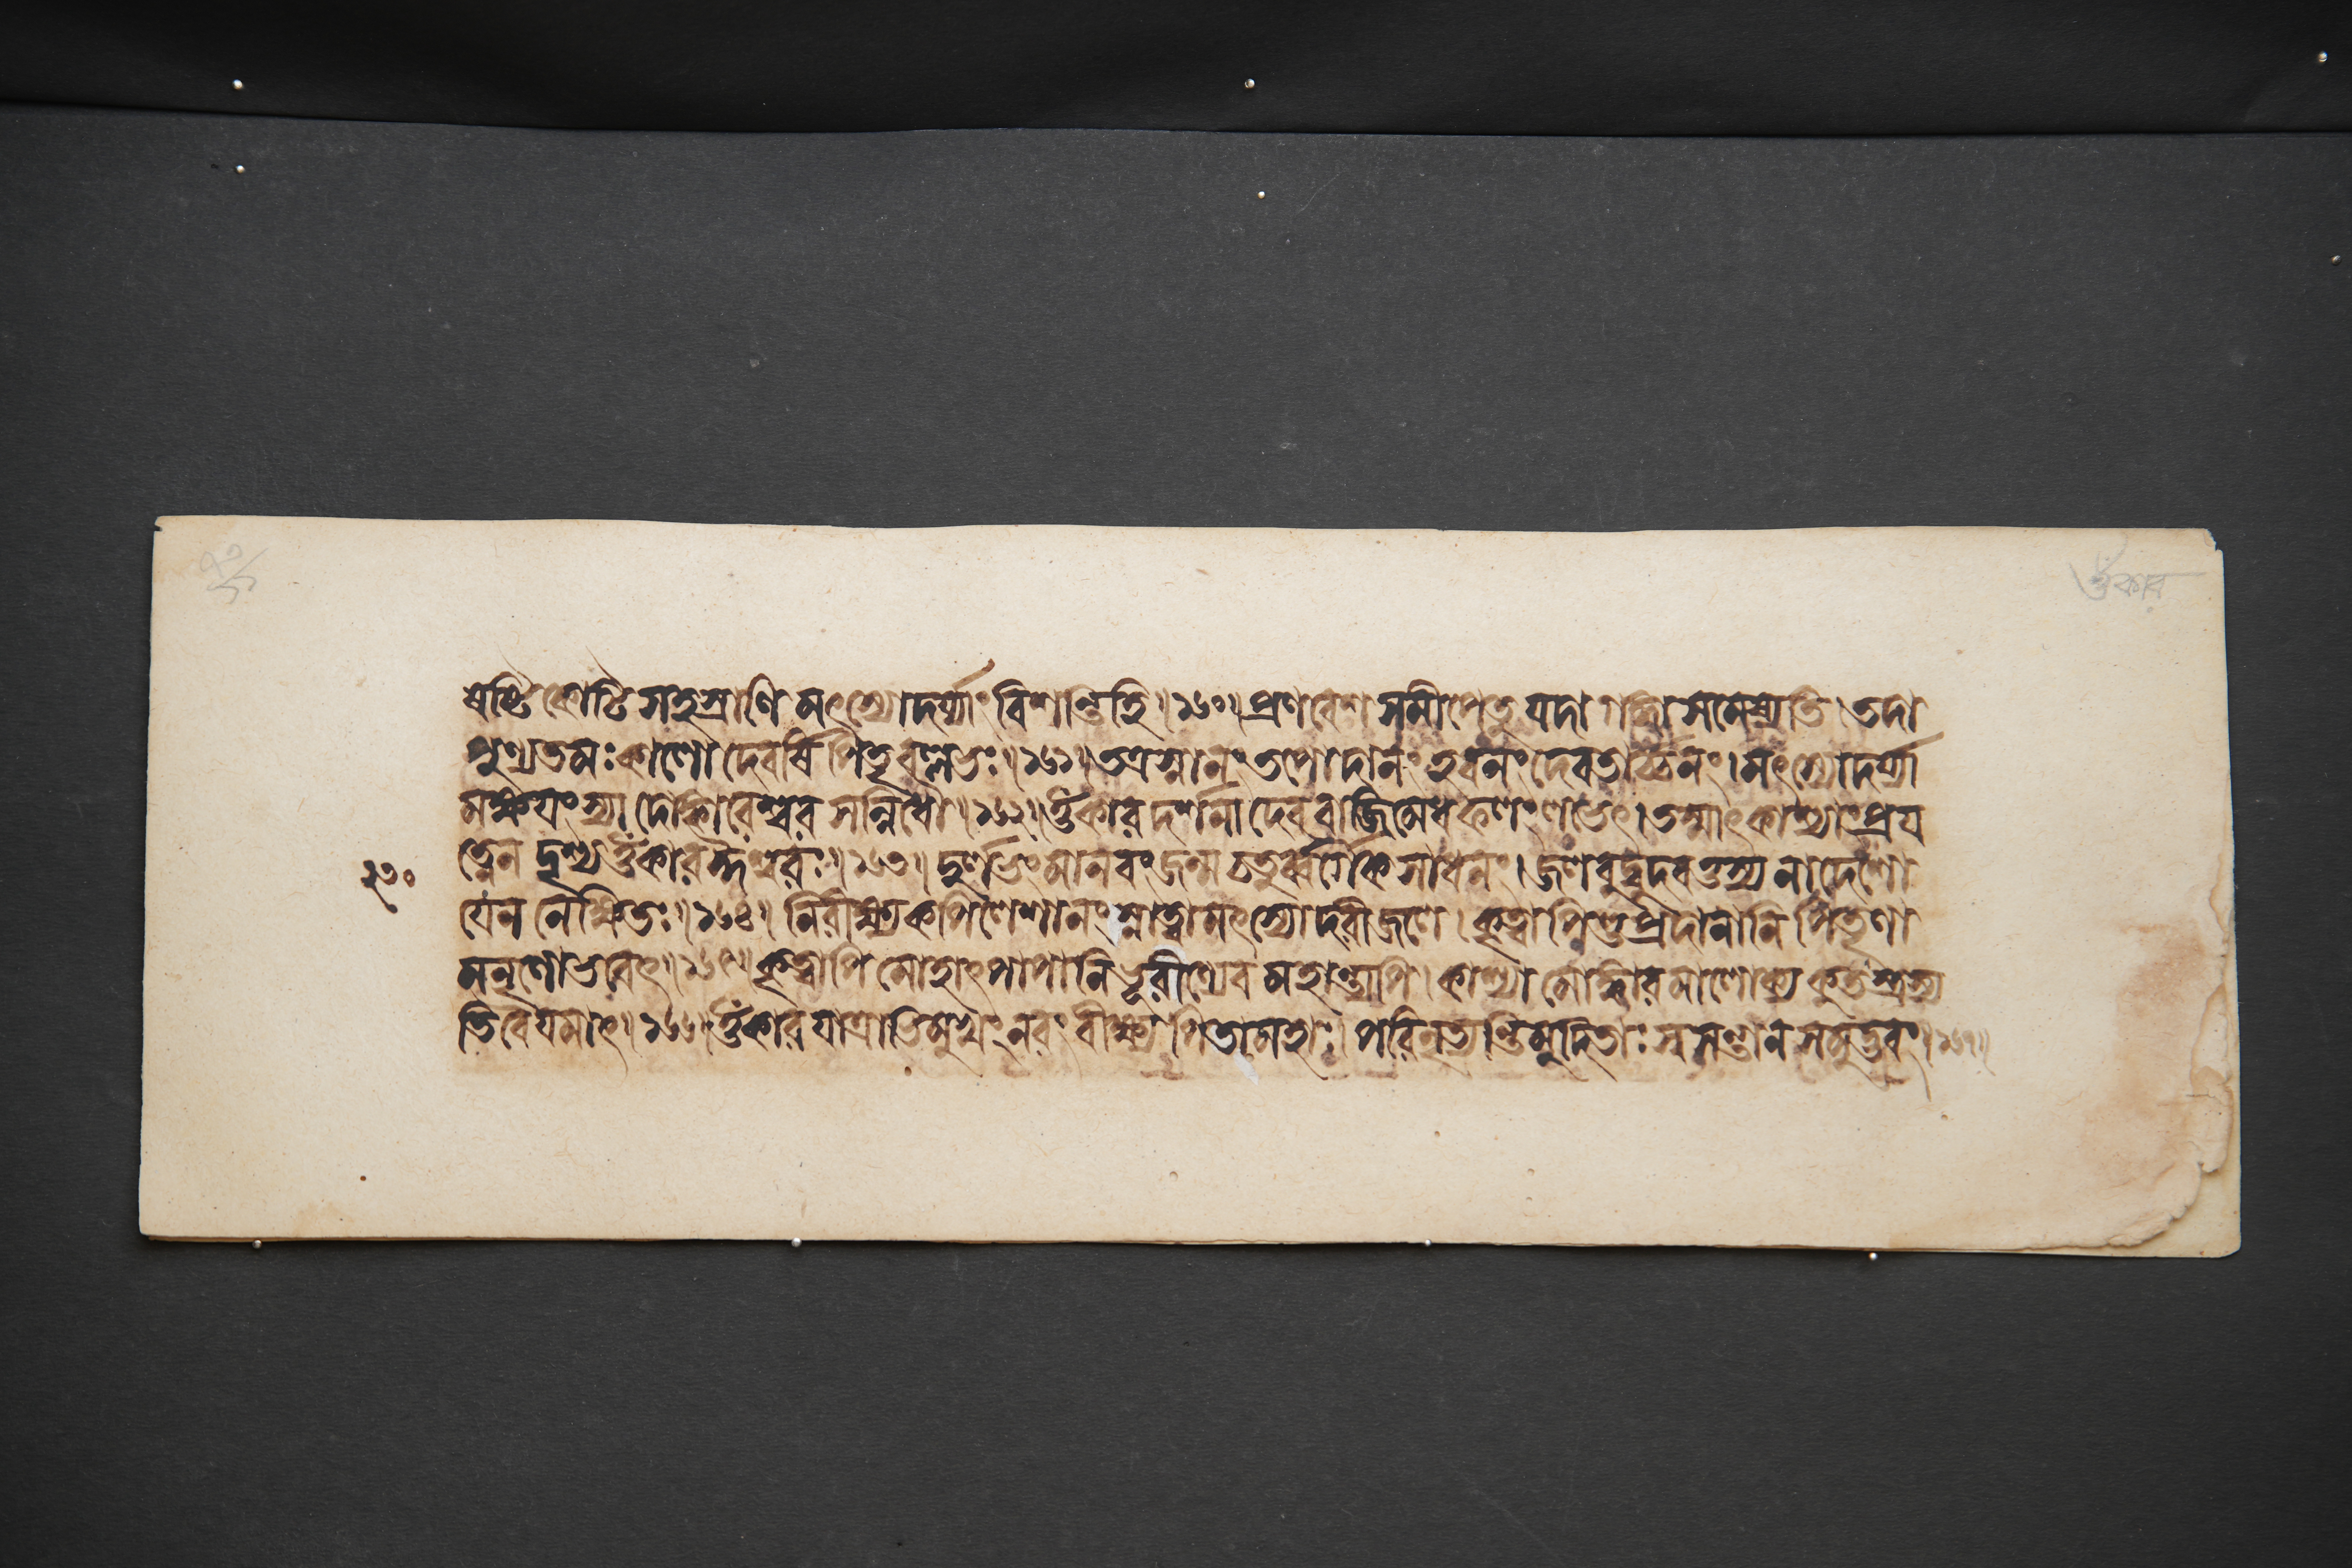 ওঁকার
ষষ্টি কোটি সহস্রাণি মৎস্যোদর্য্যাং বিশন্তিহি॥১৬০॥প্রণবেশ সমীপেতু যদা গঙ্গা সমেষ্যতি।তদা
পুণ্যতমঃ কালো দেবর্ষি পিতৃবল্লভঃ॥১৬১॥তত্রস্নানং তপোদানং হবনং দেবতার্চ্চনং।মৎস্যোদর্য্যা
মক্ষয়ংস্যা দোঙ্কারেশ্বর সন্নিধৌ॥১৬২॥ওঁকার দর্শনা দেব বাজিমেধ ফলং লভেৎ।তস্মাৎ কাশ্যাং প্রয
ত্নেন দৃশ্য ওঁকার ঈশ্বরঃ॥১৬৩॥দুর্লভং মানবং জন্ম চতুর্ব্বর্গৈক সাধনং।জলবুদ্বুদবত্তস্য নাদেশো
২৩০
যেন নেক্ষিতঃ॥১৬৪॥নিরীক্ষ্য কপিলেশানং স্নাত্বা মৎস্যোদরীজলে।কৃত্বা পিণ্ডপ্রদানানি পিতৃণা
মনৃণো ভবেৎ॥১৬৫॥কৃত্বাপি মোহাৎ পাপানি ভূরীণ্যেব মহান্ত্যপি।কাশ্যা মোঙ্কারমালোক্য কুতস্ত্রস্য
তি বৈ যমাৎ॥১৬৬॥ওঁকার যাত্রাভিমুখং নরং বীক্ষ্য পিতামহাঃ।পরিনৃত্যন্তি মুদিতাঃ স্বসন্তান সমুদ্ভবং।১৬৭॥